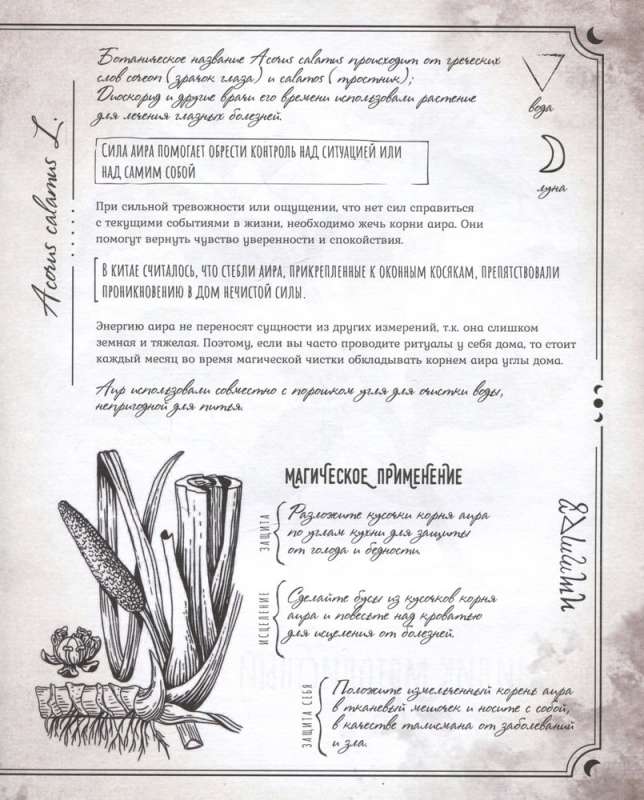 Ботаническое название Acorus calamus происходит от греческих
слов coreon (зрачок глаза) и calamos (тростник);
Диоскорид и другие врачи его времени использовали растение
для лечения глазных болезней.
вода
луна
Acorus calamus L.
Сила аира помогает обрести контроль над ситуацией или
над самим собой
При сильной тревожности или ощущении, что нет сил справиться
с текущими событиями в жизни, необходимо жечь корни аира. Они
помогут вернуть чувство уверенности и спокойствия.
В Китае считалось, что стебли аира, прикрепленные к оконным косякам, препятствовали
проникновению в дом нечистой силы.
Энергию аира не переносят сущности из других измерений, т.к. она слишком
земная и тяжелая. Поэтому, если вы часто проводите ритуалы у себя дома, то стоит
каждый месяц во время магической чистки обкладывать корнем аира углы дома.
Аир использовали совместно с порошком угля для очистки воды,
непригодной для питья.
МАГИЧЕСКОЕ ПРИМЕНЕНИЕ
ЗАЩИТА
Разложите кусочки корня аира
по углам кухни для защиты
от голода и бедности.
ИСЦЕЛЕНИЕ
Сделайте бусы из кусочков корня
аира и повесьте над кроватью
для исцеления от болезней.
ЗАЩИТА СЕБЯ
Положите измельченный корень аира
в тканевый мешочек и носите с собой,
в качестве талисмана от заболеваний
и зла.